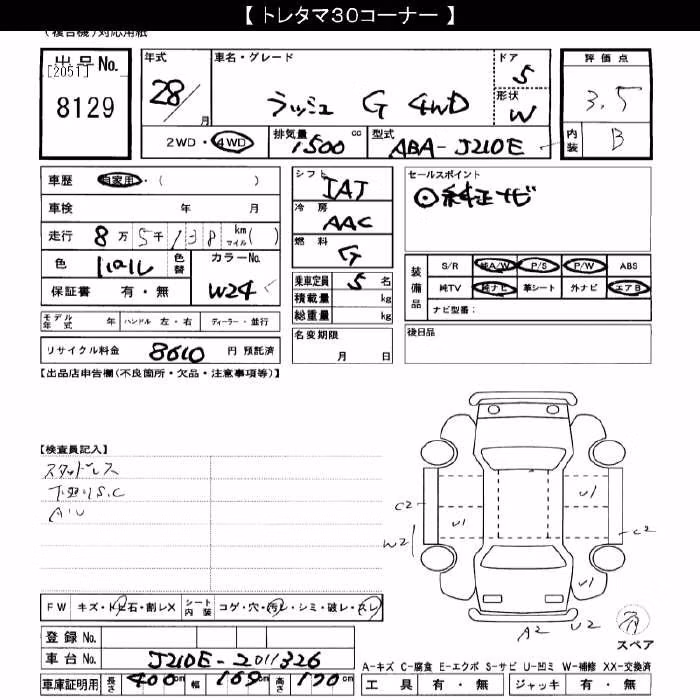 【 トレタマ30コーナー 】
(複合機)対応用紙
出品No.
[2051]
8129
年式
28/
月
車名・グレード
ラッシュ G 4WD
ドア
5
形状
W
2WD・4WD
排気量
1500 cc
型式
ABA-J210E
評価点
3.5
内装
B
車歴 自家用・( )
車検 年 月
走行 8万5千138 km マイル( )
色
色替
カラーNo.
W24
保証書 有・無
モデル年式 年 ハンドル 左・右 ディーラー・並行
リサイクル料金 8610 円 預託済
シフト
IAT
冷房
AAC
燃料
G
乗車定員 5 名
積載量 kg
総重量 kg
名変期限
月 日
セールスポイント
◎純正ナビ
装備品
S/R 純A/W P/S P/W ABS
純TV 純ナビ 革シート 外ナビ エアB
ナビ型番:
後日品
【出品店申告欄(不良箇所・欠品・注意事項等)】
【検査員記入】
スタッドレス
下廻りS.C
A・U
C2
W2
U1
U1
C2
U1
A2
U2
スペア
FW キズ・トビ石・割レX シート内装 コゲ・穴・汚レ・シミ・破レ・スレ
登録No.
車台No. J210E-2011326
車庫証明用 長さ 400cm 幅 169cm 高さ 170cm
A-キズ C-腐食 E-エクボ S-サビ U-凹ミ W-補修 XX-交換済
工具 有・無 ジャッキ 有・無